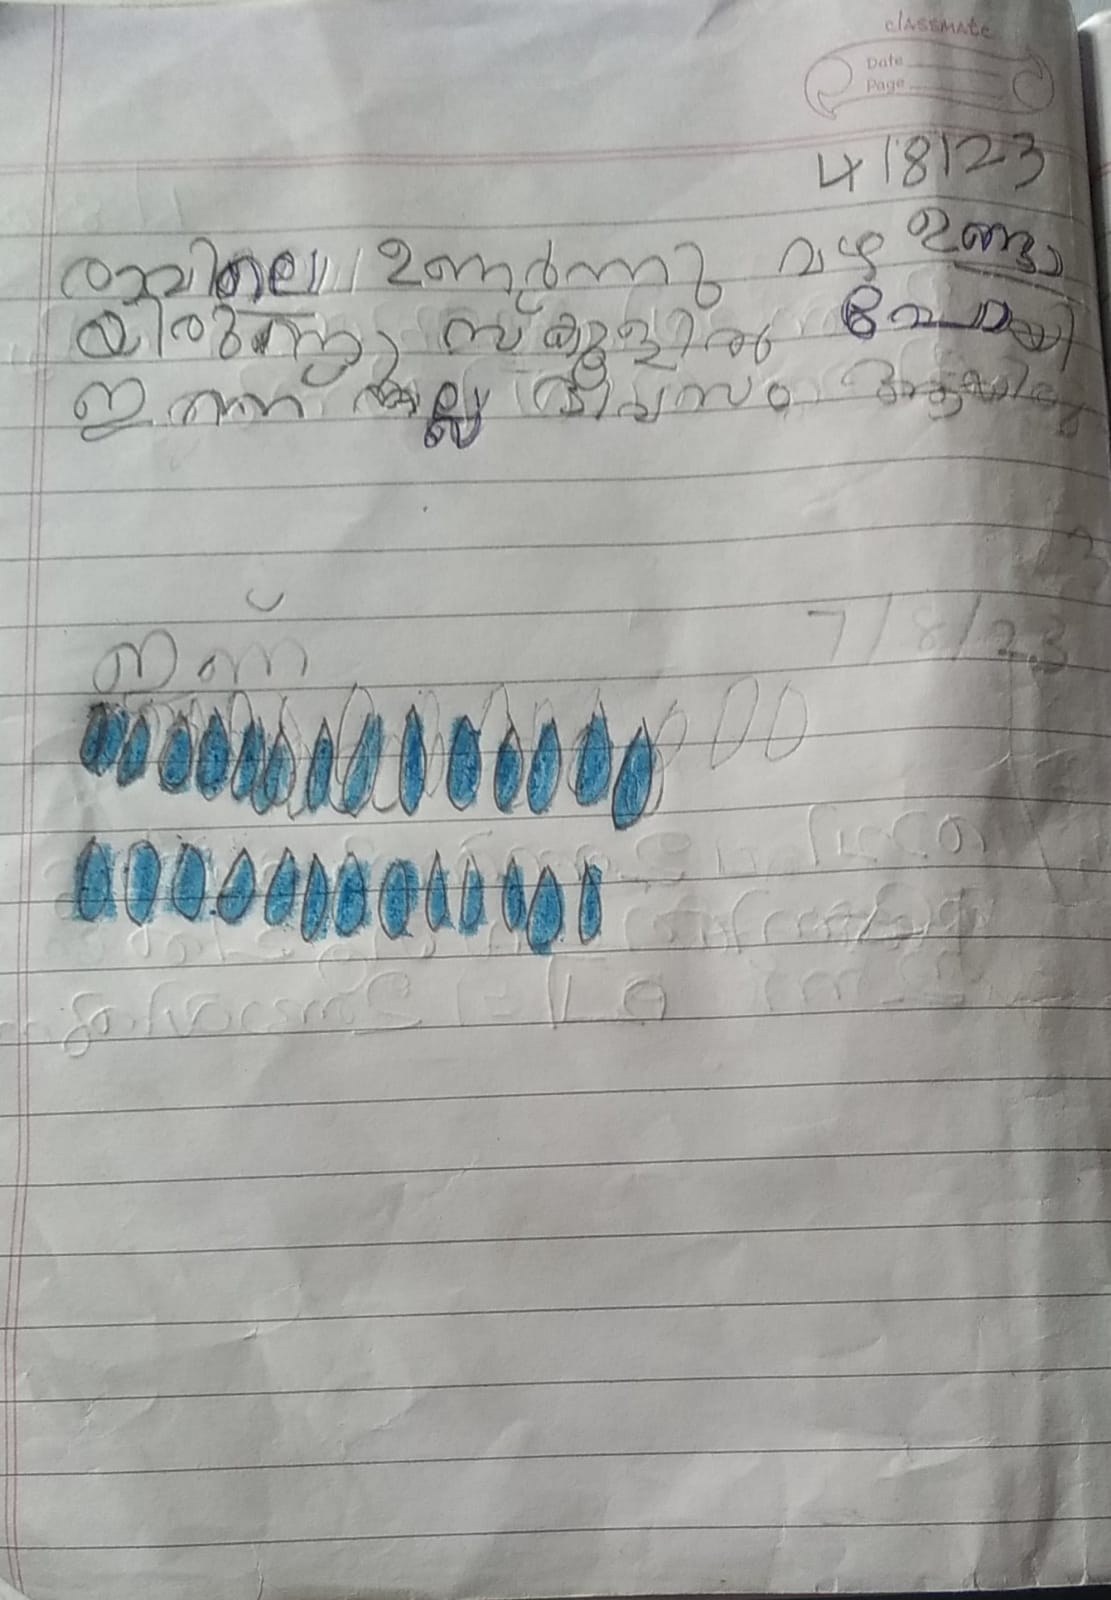 classmate
Date
Page
4/8/23
രാവിലെ ഉണർന്നു മഴ ഉണ്ടാ
യിരുന്നു സ്കൂളിൽ പോയി
ഇന്ന് നല്ല ദിവസം ആയിരു
7/8/23
ഇന്ന്